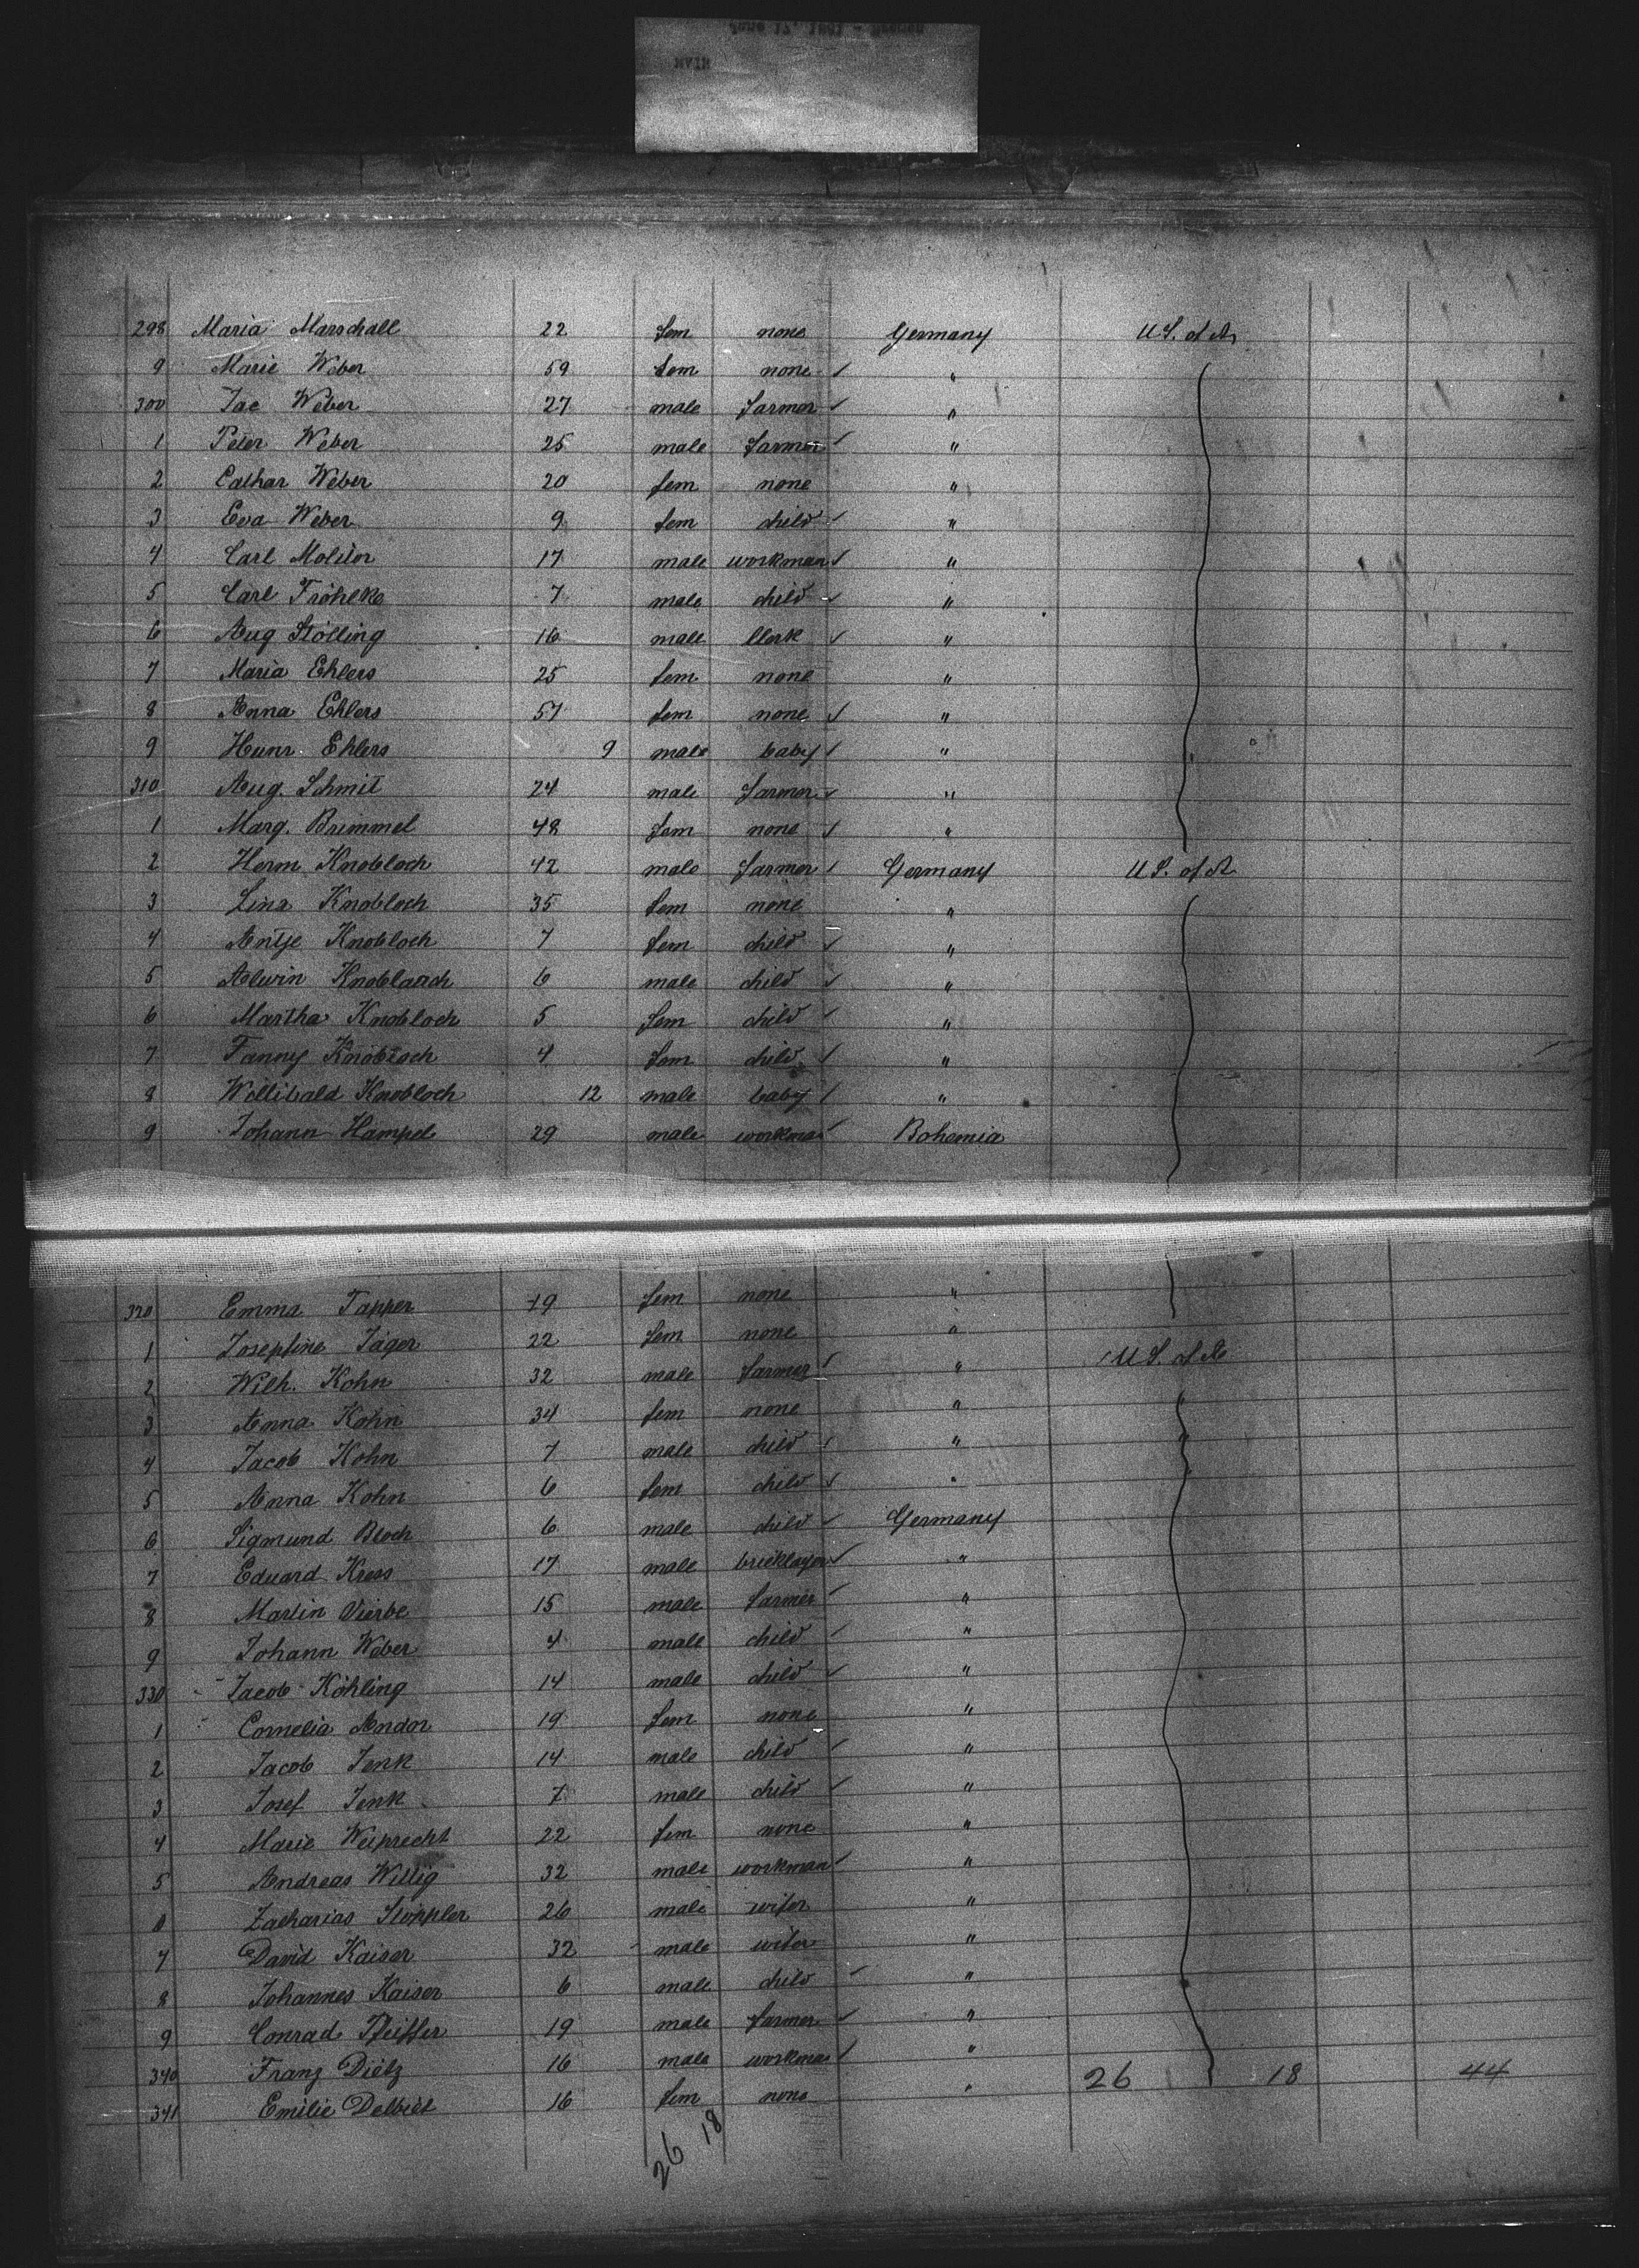 298 Maria Marschall 22 fem none Germany U.S. of A
9 Marie Weber 59 fem none "
300 Jac Weber 27 male farmer "
1 Peter Weber 25 male farmer "
2 Cathar Weber 20 fem none "
3 Eva Weber 9 fem child "
4 Carl Molitor 17 male workman "
5 Carl Fröhlke 7 male child "
6 Aug Stölling 16 male Clerk "
7 Maria Ehlers 25 fem none "
8 Anna Ehlers 57 fem none "
9 Heinr. Ehlers 9 male baby "
310 Aug. Schmit 24 male farmer "
1 Marg. Brimmel 48 fem none "
2 Herm Knobloch 42 male farmer Germany U.S. of A
3 Lina Knobloch 35 fem none "
4 Antje Knobloch 7 fem child "
5 Alwin Knoblauch 6 male child "
6 Martha Knobloch 5 fem child "
7 Fanny Knobloch 4 fem child "
8 Willibald Knobloch 12 male baby "
9 Johann Hampel 29 male workman Bohemia
320 Emma Tapper 19 fem none "
1 Josephine Jäger 22 fem none "
2 Wilh. Kohn 32 male farmer " U.S. of A
3 Anna Kohn 34 fem none " "
4 Jacob Kohn 7 male child " "
5 Anna Kohn 6 fem child " "
6 Sigmund Bloch 6 male child Germany
7 Eduard Kress 17 male bricklayer "
8 Martin Vierbe 15 male farmer "
9 Johann Weber 4 male child "
330 Jacob Köhling 14 male child "
1 Cornelia Andor 19 fem none "
2 Jacob Jenk 14 male child "
3 Josef Jenk 7 male child "
4 Marie Weiprecht 22 fem none "
5 Andreas Willig 32 male workman "
6 Zacharias Stoppler 26 male "
7 David Kaiser 32 male "
8 Johannes Kaiser 6 male child "
9 Conrad Pfeiffer 19 male farmer "
340 Franz Dietz 16 male workman " 26 18 44
341 Emilie 16 fem none "
26 18